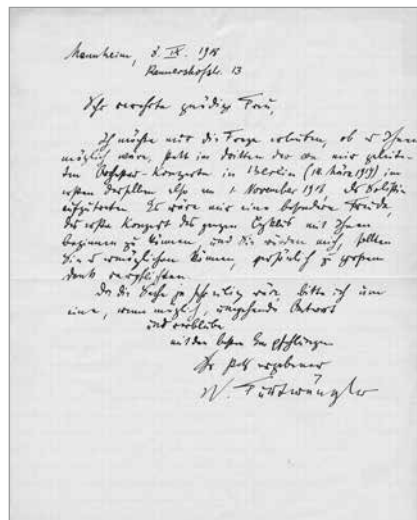 Mannheim, 8. IX. 1918
Rennershofstr. 13
Sehr verehrte gnädige Frau,
Ich möchte mir die Frage erlauben, ob es Ihnen
möglich wäre, statt im dritten der von mir geleite-
ten Orchester-Konzerte in Berlin (14. März 1919) im
ersten derselben also am 1. November 1918 als Solistin
aufzutreten. Es wäre mir eine besondere Freude,
das erste Konzert des ganzen Cyklus mit Ihnen
beginnen zu können und Sie würden mich, sollten
Sie es ermöglichen können, persönlich zu grossem
Dank verpflichten.
Da die Sache ja sehr eilig wäre, bitte ich um
eine, wenn möglich, umgehende Antwort
und verbleibe
mit den besten Empfehlungen
Ihr stets ergebener
W. Furtwängler